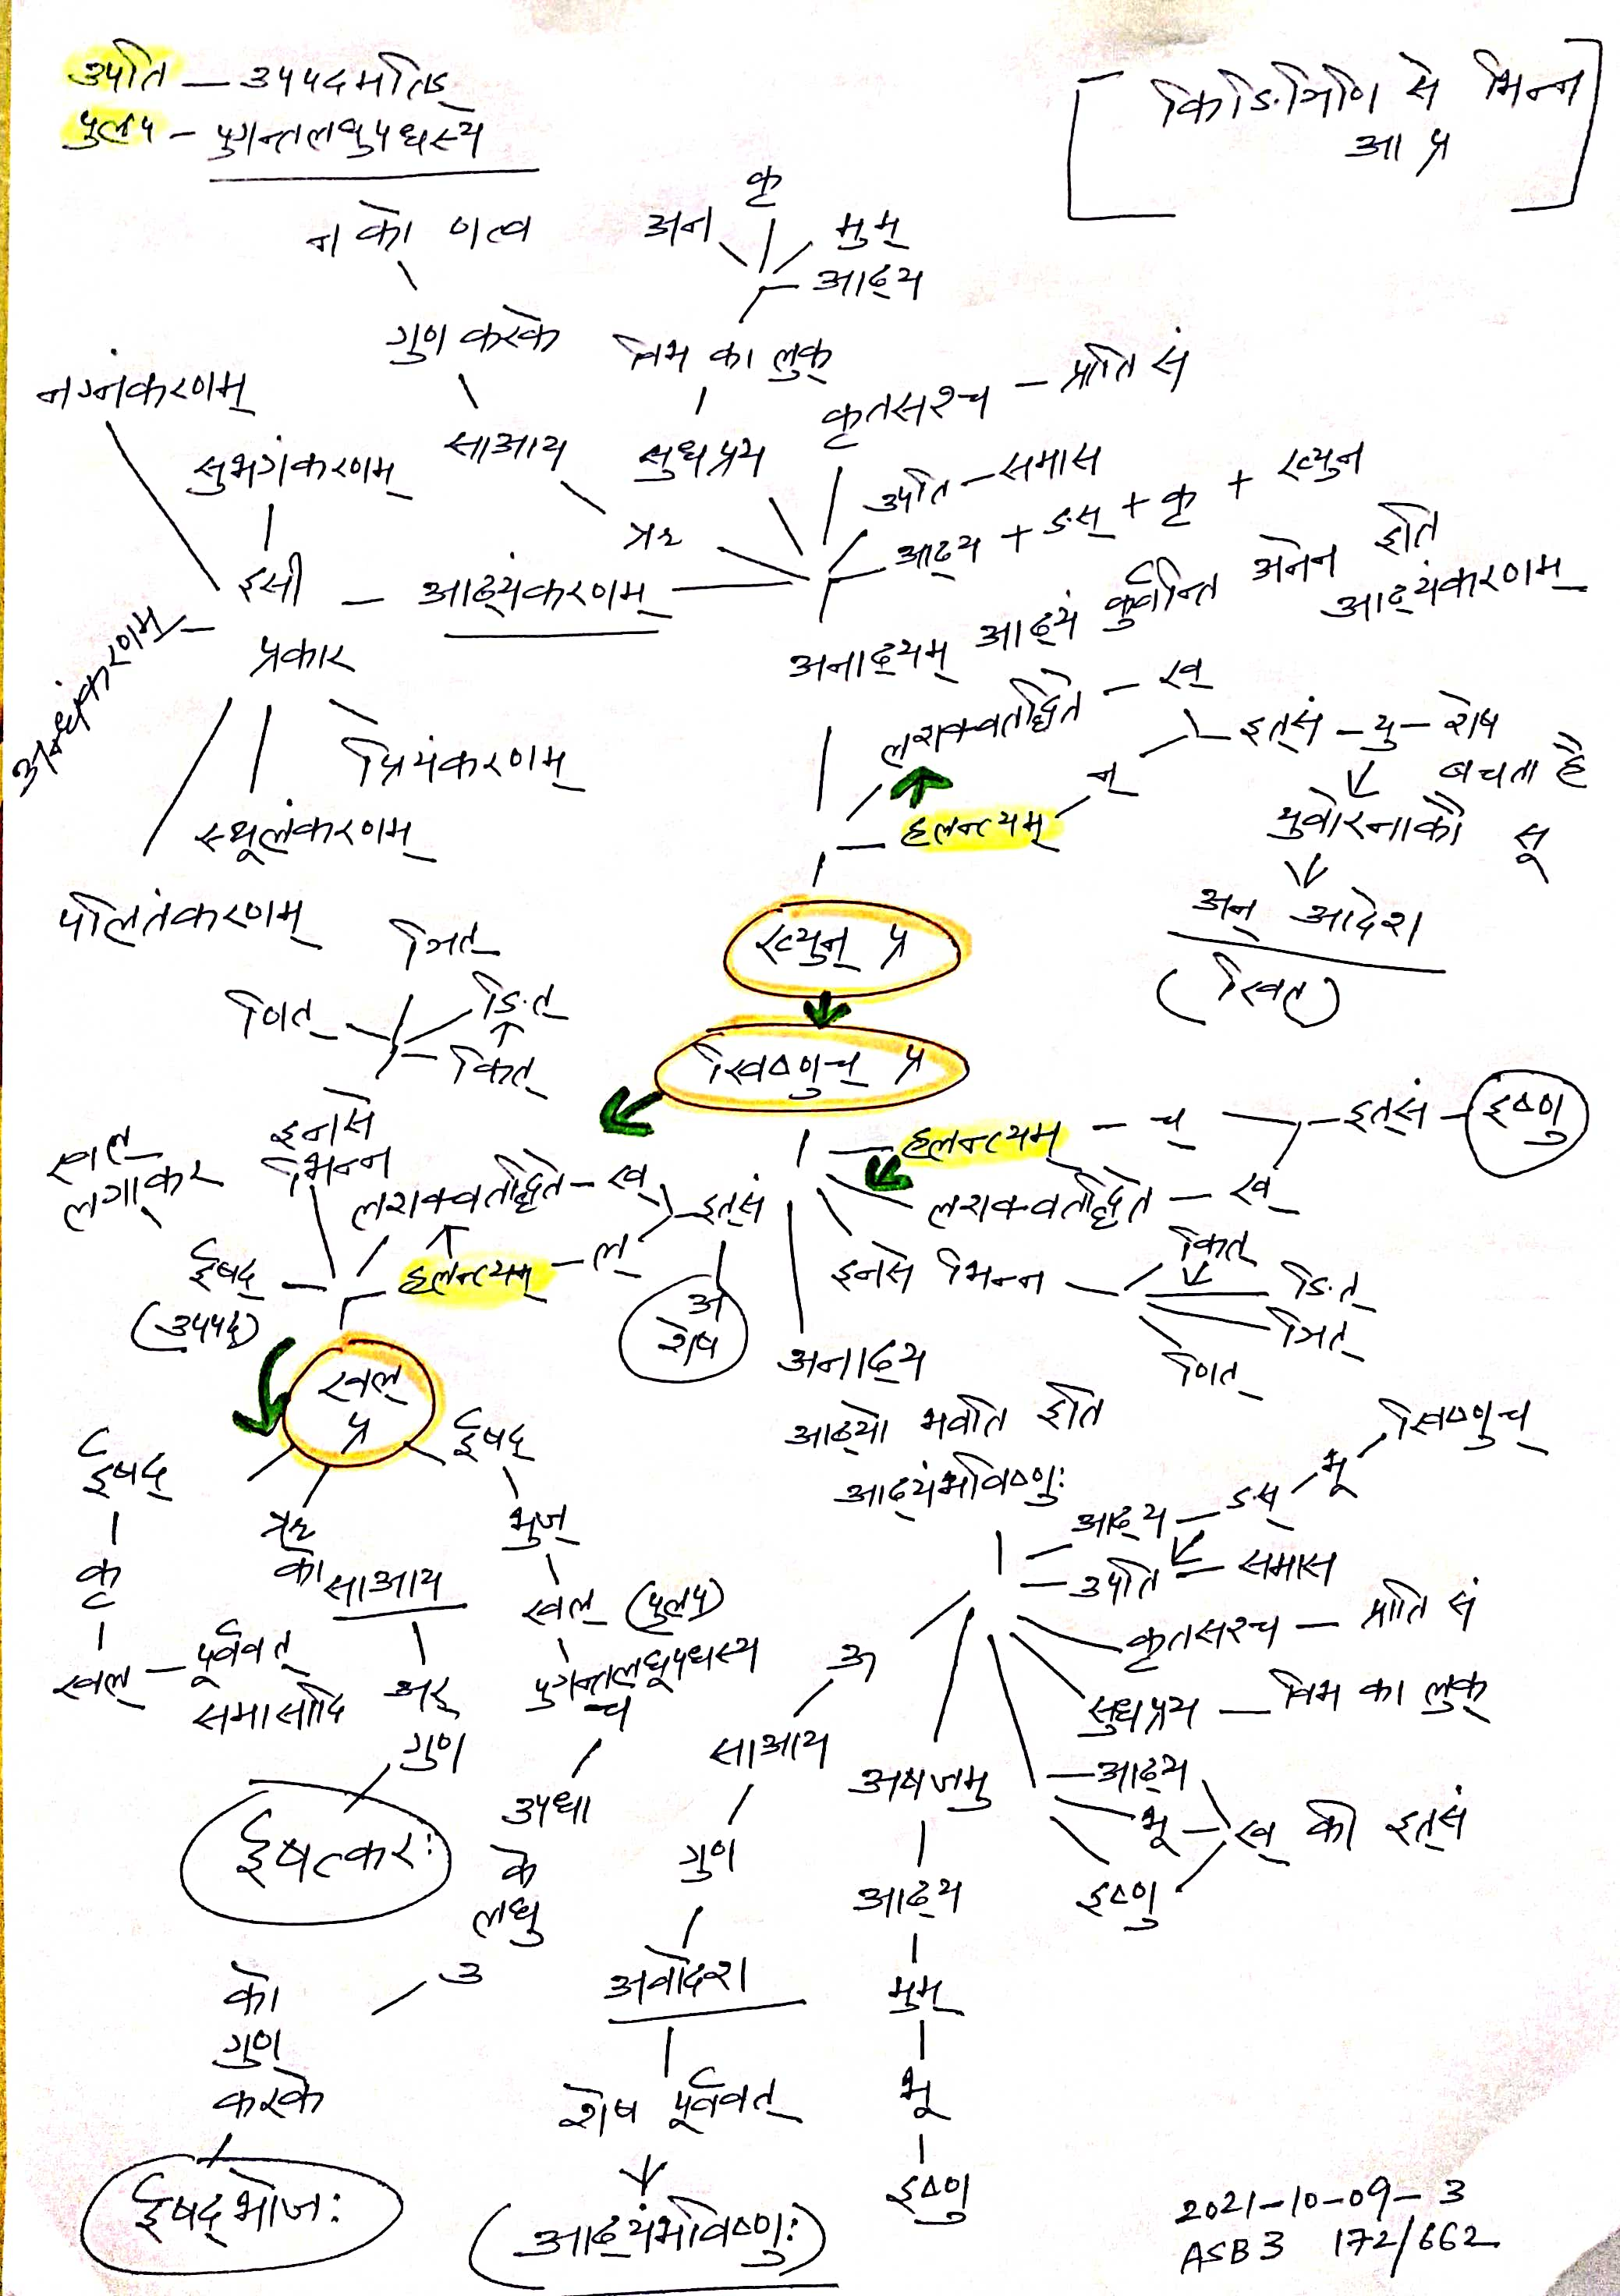 उपति — उपपदमतिङ्
पुलप — पुगन्तलघुपधस्ये
किङिञिणि से भिन्न
आ प्र
न को णत्व
गुण करके
साआय
ऋ
अन
कृ
मुम्
आढ्य
विभ का लुक्
सुधप्रय
कृतसश्च — प्राति सं
उपति — समास
आढ्य + ङस् + कृ + ख्युन
अनाढ्यम् आढ्यं कुर्वन्ति अनेन इति
आढ्यंकरणम्
नग्नंकरणम्
सुभगंकरणम्
इसी — आढ्यंकरणम्
प्रकार
अन्धंकरणम्
प्रियंकरणम्
स्थूलंकरणम्
पलितंकरणम्
लशक्वतद्धिते — ख्
हलन्त्यम्
न्
इत्सं — यु — शेष
बचता है
युवोरनाकौ सू
अन् आदेश
(खित)
ख्युन् प्र
खिष्णुच् प्र
ञित्
णित्
ङित्
कित्
इनसे
भिन्न
खल्
लगाकर
लशक्वतद्धिते — ख्
हलन्त्यम् — ल्
इत्सं
अ
शेष
ईषद्
(उपपद)
हलन्त्यम् — च्
लशक्वतद्धिते — ख्
इत्सं — इष्णु
इनसे भिन्न
कित्
ङित्
ञित्
णित्
अनाढ्य
आढ्यो भवति इति
आढ्यंभविष्णुः
खल्
प्र
ईषद्
कृ
खल् — पूर्ववत्
समासादि
ऋ
का
साआय
अर्
गुण
ईषत्करः
ईषद्
भुज्
खल् (पुलप)
पुगन्तलघूपधस्य
च
उपधा
के
लघु
उ
को
गुण
करके
ईषद्भोजः
आढ्य — ङस् / भू / खिष्णुच्
उपति — समास
कृतसश्च — प्राति सं
सुधप्रय — विभ का लुक्
आढ्य
भू — ख् की इत्सं
इष्णु
अषजमु
आढ्य
मुम्
भू
इष्णु
साआय
गुण
अवादेश
शेष पूर्ववत्
(आढ्यंभविष्णुः)
2021-10-09-3
ASB3 172/662